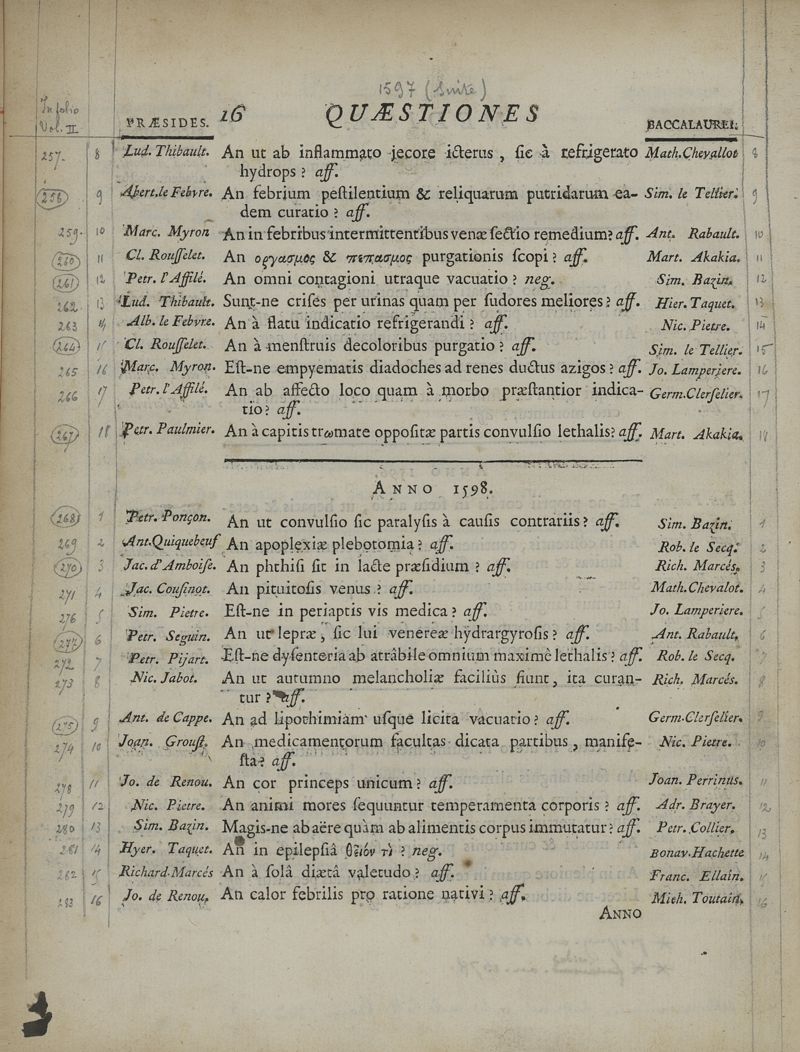 1597 (Suite)
In folio
Vol. II
PRÆSIDES. 16 QUÆSTIONES BACCALAUREI.
257. 8 Lud. Thibault. An ut ab inflammato jecore icterus, ſic à refrigerato Math. Chevallot 8
hydrops? aff.
258 9 Abert. le Febvre. An febrium peſtilentium & reliquarum putridarum ea- Sim. le Tellier. 9
dem curatio? aff.
259. 10 Marc. Myron An in febribus intermittentibus venæ ſectio remedium? aff. Ant. Rabault. 10
260 11 Cl. Rouſſelet. An οργασμος & πεπασμος purgationis ſcopi? aff. Mart. Akakia. 11
261 12 Petr. l'Affilé. An omni contagioni utraque vacuatio? neg. Sim. Bazin. 12
262 13 Lud. Thibault. Sunt-ne criſés per urinas quam per ſudores meliores? aff. Hier. Taquet. 13
263 14 Alb. le Febvre. An à flatu indicatio refrigerandi? aff. Nic. Pietre. 14
264 15 Cl. Rouſſelet. An à menſtruis decoloribus purgatio? aff. Sim. le Tellier. 15
265 16 Marc. Myron. Eſt-ne empyematis diadoches ad renes ductus azigos? aff. Jo. Lamperiere. 16
266 17 Petr. l'Affilé. An ab affecto loco quam à morbo præſtantior indica- Germ. Clerſelier. 17
tio? aff.
267 18 Petr. Paulmier. An à capitis trωmate oppoſitæ partis convulſio lethalis? aff. Mart. Akakia. 18
ANNO 1598.
268 1 Petr. Ponçon. An ut convulſio ſic paralyſis à cauſis contrariis? aff. Sim. Bazin. 1
269 2 Ant. Quiquebeuf An apoplexiæ plebotomia? aff. Rob. le Secq. 2
270 3 Jac. d'Amboiſe. An phthiſi ſit in lacte præſidium? aff. Rich. Marcés. 3
271 4 Jac. Couſinot. An pituitoſis venus? aff. Math. Chevalot. 4
276 5 Sim. Pietre. Eſt-ne in periaptis vis medica? aff. Jo. Lamperiere. 5
277 6 Petr. Seguin. An ut lepræ, ſic lui venereæ hydrargyroſis? aff. Ant. Rabault. 6
272 7 Petr. Pijart. Eſt-ne dyſenteria ab atrâ bile omnium maximè lethalis? aff. Rob. le Secq. 7
273 8 Nic. Jabot. An ut autumno melancholiæ faciliùs fiunt, ita curan- Rich. Marcés. 8
tur? aff.
275 9 Ant. de Cappe. An ad lipothimiam uſque licita vacuatio? aff. Germ. Clerſelier. 9
274 10 Joan. Grouſſ. An medicamentorum facultas dicata partibus, manife- Nic. Pietre. 10
ſta? aff.
278 11 Jo. de Renou. An cor princeps unicum? aff. Joan. Perrinus. 11
279 12 Nic. Pietre. An animi mores ſequuntur temperamenta corporis? aff. Adr. Brayer. 12
280 13 Sim. Bazin. Magis-ne ab aëre quàm ab alimentis corpus immutatur? aff. Petr. Collier. 13
281 14 Hyer. Taquet. An in epilepſiâ θεῖόν τὶ? neg. Bonav. Hachette 14
282 15 Richard. Marcés An à ſolâ diætâ valetudo? aff. Franc. Ellain. 15
283 16 Jo. de Renou. An calor febrilis pro ratione nativi? aff. Mich. Toutain. 16
ANNO